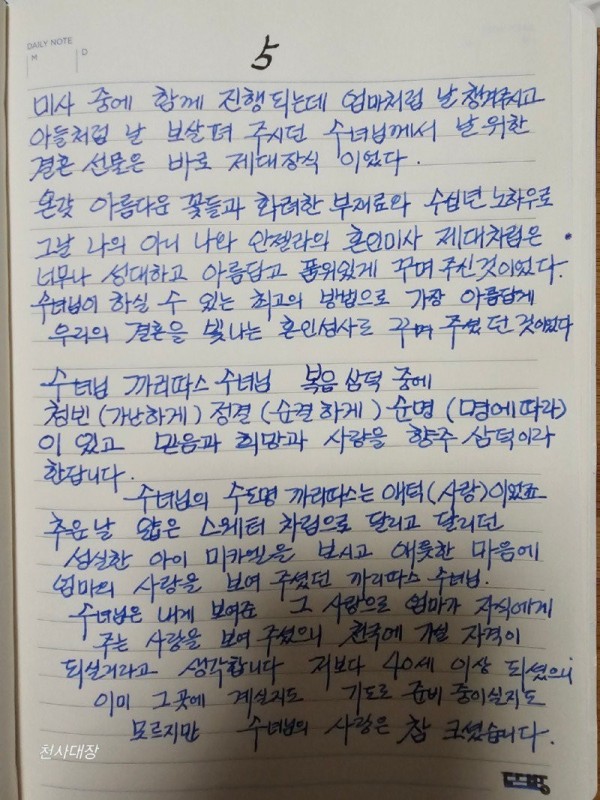 DAILY NOTE
M
D
5
미사 중에 함께 진행 되는데 엄마처럼 날 챙겨주시고
아들처럼 날 보살펴 주시던 수녀님께서 날 위한
결혼 선물은 바로 제대장식 이었다.
온갖 아름다운 꽃들과 화려한 부재료와 수십년 노하우로
그날 나의 아니 나와 안젤라의 혼인미사 제대차림은
너무나 성대하고 아름답고 품위있게 꾸며 주신것이었다.
수녀님이 하실 수 있는 최고의 방법으로 가장 아름답게
우리의 결혼을 빛나는 혼인성사로 꾸며 주셨던것이었다
수녀님 까리따스 수녀님 복음 삼덕 중에
청빈(가난하게) 정결(순결하게) 순명(명에따라)
이 있고 믿음과 희망과 사랑을 향주 삼덕이라
한답니다.
수녀님의 수도명 까리따스는 애덕(사랑)이었죠
추운날 얇은 스웨터 차림으로 달리고 달리던
성실한 아이 미카엘을 보시고 애틋한 마음에
엄마의 사랑을 보여 주셨던 까리따스 수녀님.
수녀님은 내게 보여준 그 사랑으로 엄마가 자식에게
주는 사랑을 보여 주셨으니 천국에 가실 자격이
되실거라고 생각합니다 저보다 40세 이상 되셨으니
이미 그곳에 계실지도 기도로 준비 중이실지도
모르지만 수녀님의 사랑은 참 크셨습니다.
천사대장